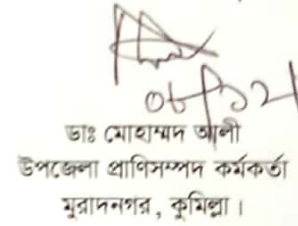 ডাঃ মোহাম্মদ আলী
উপজেলা প্রাণিসম্পদ কর্মকর্তা
মুরাদনগর, কুমিল্লা।